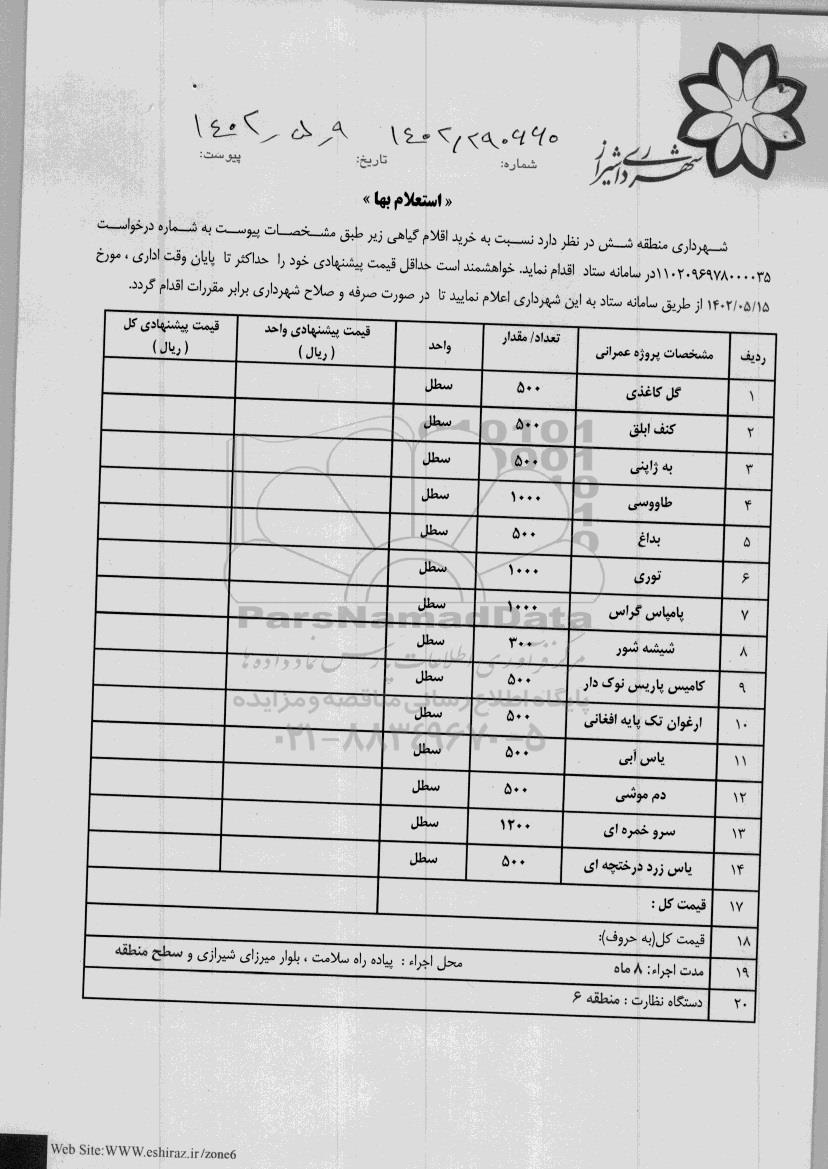 شهرداری شیراز
شماره: ۱۴۰۲/۲۹۰۶۶۰
تاریخ:
پیوست:
« استعلام بها »
شهرداری منطقه شش در نظر دارد نسبت به خرید اقلام گیاهی زیر طبق مشخصات پیوست به شماره درخواست
۱۱۰۲۰۹۶۹۷۸۰۰۰۰۳۵در سامانه ستاد اقدام نماید. خواهشمند است حداقل قیمت پیشنهادی خود را حداکثر تا پایان وقت اداری ، مورخ
۱۴۰۲/۰۵/۱۵ از طریق سامانه ستاد به این شهرداری اعلام نمایید تا در صورت صرفه و صلاح شهرداری برابر مقررات اقدام گردد.
ردیف مشخصات پروژه عمرانی تعداد/ مقدار واحد قیمت پیشنهادی واحد ( ریال ) قیمت پیشنهادی کل ( ریال )
۱ گل کاغذی ۵۰۰ سطل
۲ کنف ابلق ۵۰۰ سطل
۳ به ژاپنی ۵۰۰ سطل
۴ طاووسی ۱۰۰۰ سطل
۵ بداغ ۵۰۰ سطل
۶ توری ۱۰۰۰ سطل
۷ پامپاس گراس ۱۰۰۰ سطل
۸ شیشه شور ۳۰۰ سطل
۹ کامیس پاریس نوک دار ۵۰۰ سطل
۱۰ ارغوان تک پایه افغانی ۵۰۰ سطل
۱۱ یاس آبی ۵۰۰ سطل
۱۲ دم موشی ۵۰۰ سطل
۱۳ سرو خمره ای ۱۲۰۰ سطل
۱۴ یاس زرد درختچه ای ۵۰۰ سطل
۱۷ قیمت کل :
۱۸ قیمت کل(به حروف):
۱۹ مدت اجراء: ۸ ماه محل اجراء : پیاده راه سلامت ، بلوار میرزای شیرازی و سطح منطقه
۲۰ دستگاه نظارت : منطقه ۶
ParsNamadData
مرکز فرآوری اطلاعات پارس نماد داده ها
پایگاه اطلاع رسانی مناقصه و مزایده
۰۲۱-۸۸۳۴۹۶۷۰-۵
Web Site:WWW.eshiraz.ir/zone6